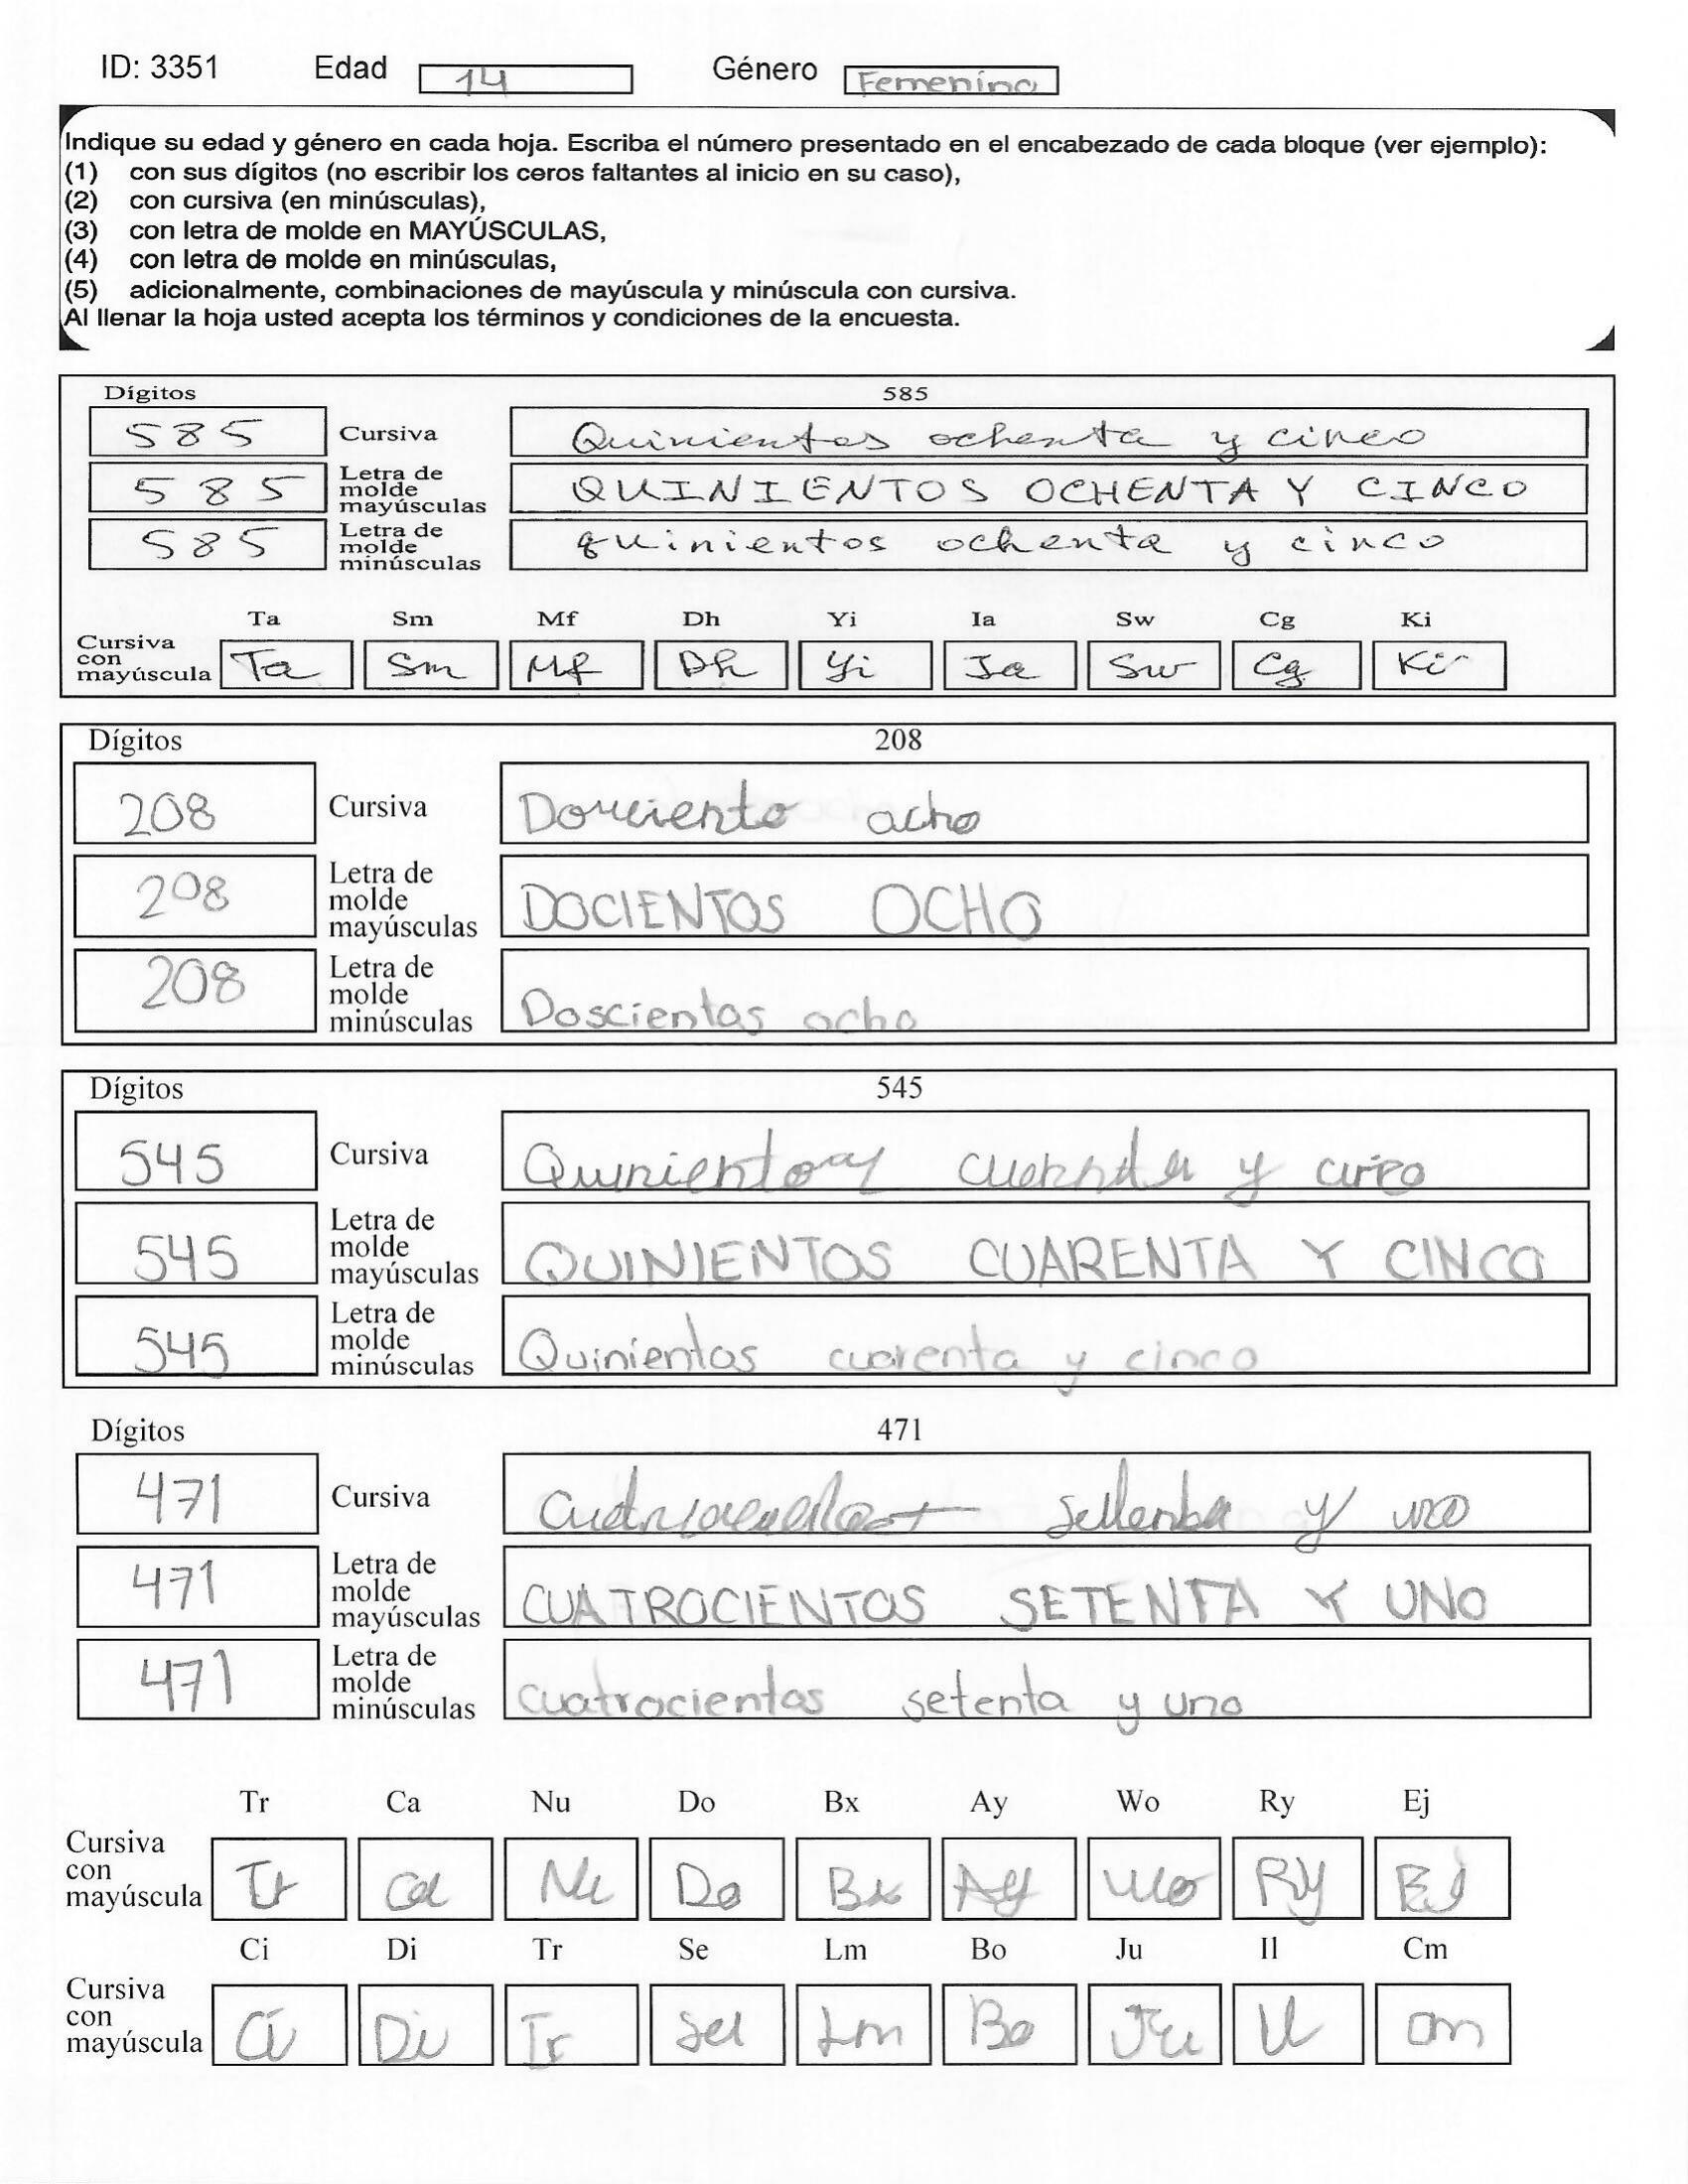 ID: 3351 Edad 14 Género Femenino
Indique su edad y género en cada hoja. Escriba el número presentado en el encabezado de cada bloque (ver ejemplo):
(1) con sus dígitos (no escribir los ceros faltantes al inicio en su caso),
(2) con cursiva (en minúsculas),
(3) con letra de molde en MAYÚSCULAS,
(4) con letra de molde en minúsculas,
(5) adicionalmente, combinaciones de mayúscula y minúscula con cursiva.
Al llenar la hoja usted acepta los términos y condiciones de la encuesta.
Dígitos 585
585 Cursiva Quinientos ochenta y cinco
585 Letra de molde mayúsculas QUINIENTOS OCHENTA Y CINCO
585 Letra de molde minúsculas quinientos ochenta y cinco
Ta Sm Mf Dh Yi Ia Sw Cg Ki
Cursiva con mayúscula Ta Sm Mf Dh Yi Ia Sw Cg Ki
Dígitos 208
208 Cursiva ocho
208 Letra de molde mayúsculas DOCIENTOS OCHO
208 Letra de molde minúsculas Doscientos ocho
Dígitos 545
545 Cursiva y
545 Letra de molde mayúsculas QUINIENTOS CUARENTA Y CINCO
545 Letra de molde minúsculas Quinientos cuarenta y cinco
Dígitos 471
471 Cursiva y uno
471 Letra de molde mayúsculas CUATROCIENTOS SETENTA Y UNO
471 Letra de molde minúsculas cuatrocientos setenta y uno
Tr Ca Nu Do Bx Ay Wo Ry Ej
Cursiva con mayúscula Tr Ca Nu Do Bx Ay Wo Ry Ej
Ci Di Tr Se Lm Bo Ju Il Cm
Cursiva con mayúscula Ci Di Tr Sel Lm Bo Ju Il Cm